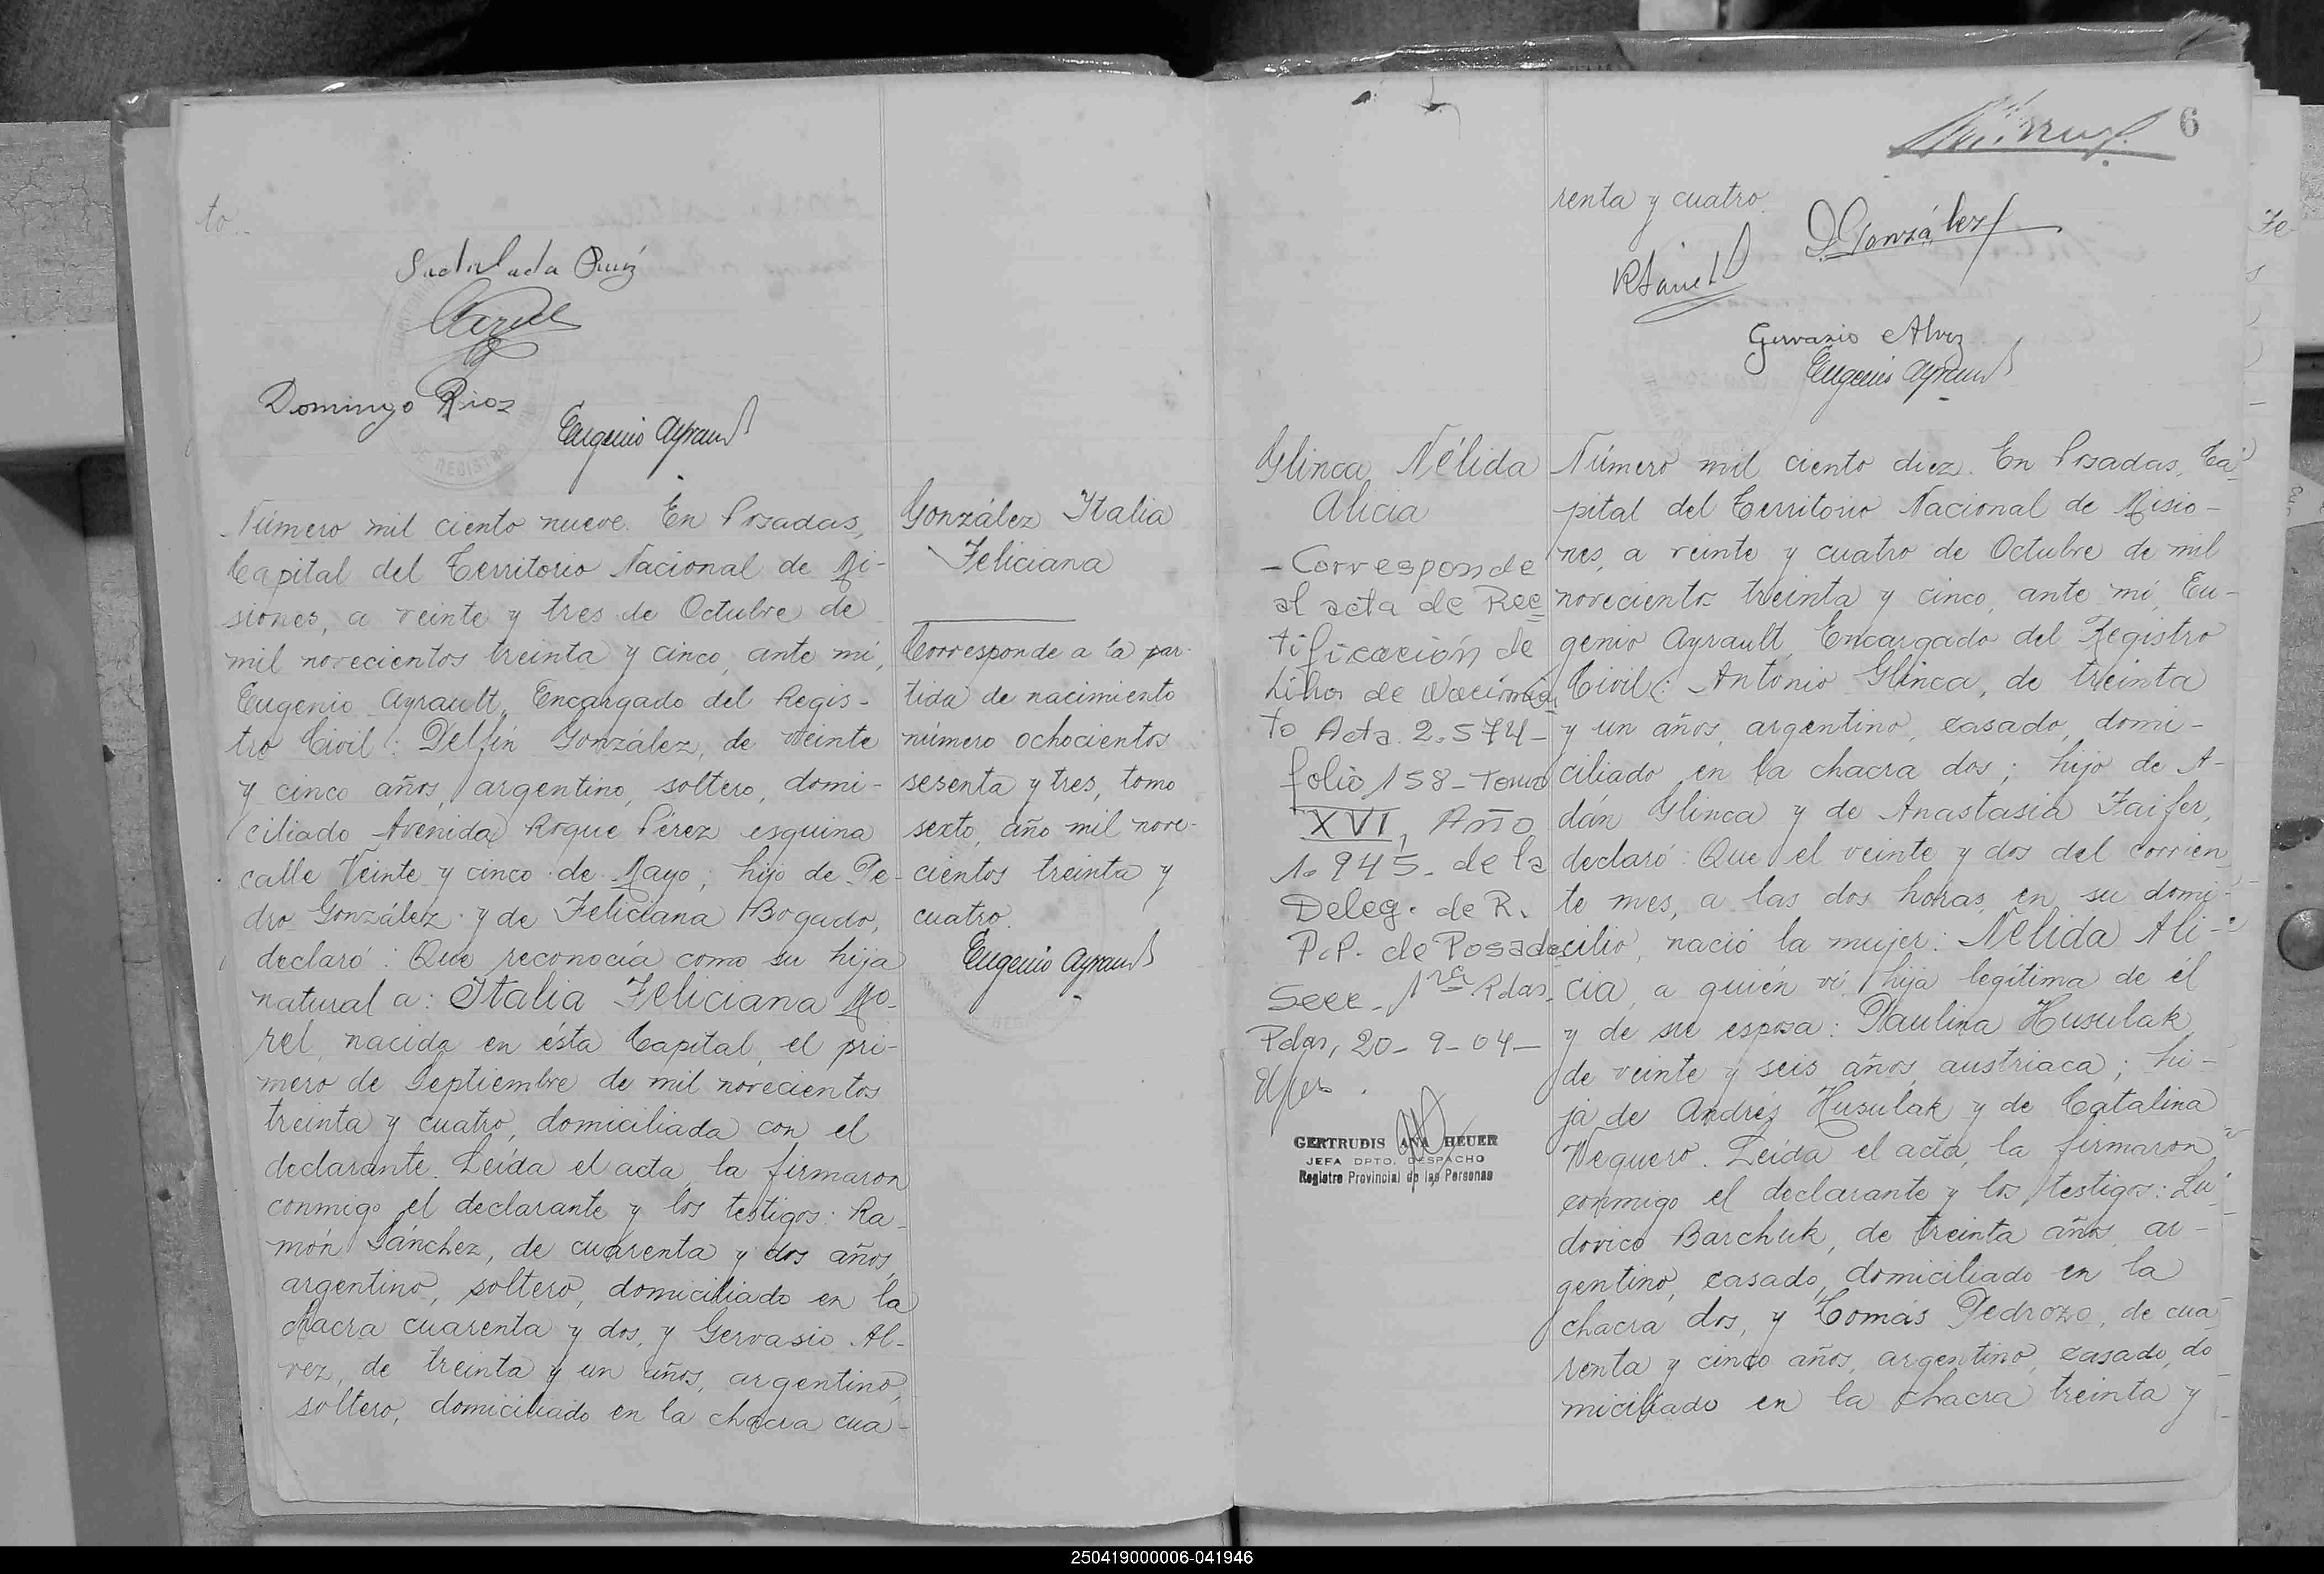 to.-
Ruiz
Domingo Rios
Eugenio Ayrault
DE REGISTRO
Número mil ciento nueve. En Posadas,
Capital del Territorio Nacional de Mi-
siones, a veinte y tres de Octubre de
mil novecientos treinta y cinco, ante mí,
Eugenio Ayrault, Encargado del Regis-
tro Civil: Delfín González, de veinte
y cinco años, argentino, soltero, domi-
ciliado Avenida Roque Pérez esquina
calle Veinte y cinco de Mayo; hijo de Pe-
dro González y de Feliciana Bogado,
declaró: Que reconocía como su hija
natural a: Italia Feliciana Mo-
rel, nacida en ésta Capital, el pri-
mero de Septiembre de mil novecientos
treinta y cuatro, domiciliada con el
declarante. Leída el acta, la firmaron
conmigo el declarante y los testigos: Ra-
món Sánchez, de cuarenta y dos años,
argentino, soltero, domiciliado en la
chacra cuarenta y dos, y Gervasio Al-
vez, de treinta y un años, argentino,
soltero, domiciliado en la chacra cua-
González Italia
Feliciana
Corresponde a la par-
tida de nacimiento
número ochocientos
sesenta y tres, tomo
sexto, año mil nove-
cientos treinta y
cuatro.
Eugenio Ayrault
6
renta y cuatro.
D. González
Gervasio Alvez
Eugenio Ayrault
Glinca Nélida
Alicia
- Corresponde
al acta de Rec
tificación de
Libros de Nacimien
to Acta 2.574-
folio 158 - Tomo
XVI, Año
1.945- de la
Deleg. de R.
P.P. de Posadas
Secc. 1ra Pdas.
Pdas, 20-9-04-
GERTRUDIS ANA HEUER
JEFA DPTO. DESPACHO
Registro Provincial de las Personas
Número mil ciento diez. En Posadas, Ca-
pital del Territorio Nacional de Misio-
nes, a veinte y cuatro de Octubre de mil
novecientos treinta y cinco, ante mí, Eu-
genio Ayrault, Encargado del Registro
Civil: Antonio Glinca, de treinta
y un años, argentino, casado, domi-
ciliado en la chacra dos; hijo de A-
dán Glinca y de Anastasia Faifer,
declaró: Que el veinte y dos del corrien
te mes, a las dos horas, en su domi-
cilio, nació la mujer: Nélida Ali-
cia, a quién ví, hija legítima de él
y de su esposa: Paulina Husulak,
de veinte y seis años, austriaca; hi-
ja de Andrés Husulak y de Catalina
Wequero. Leída el acta, la firmaron
conmigo el declarante y los testigos: Lu-
dovico Barchuk, de treinta años, ar-
gentino, casado, domiciliado en la
chacra dos, y Tomás Pedrozo, de cua
renta y cinco años, argentino, casado, do
miciliado en la chacra treinta y
Fe-
250419000006-041946